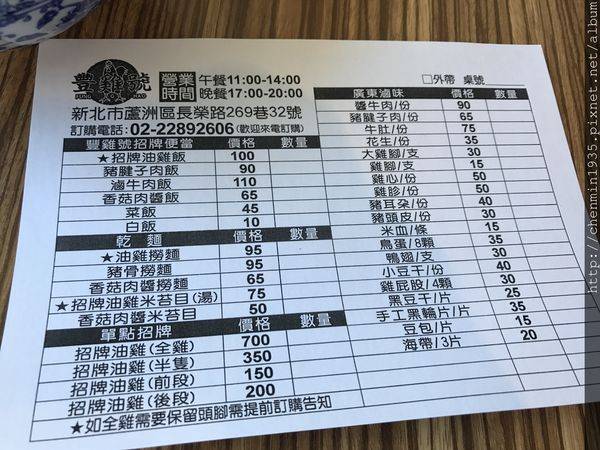 豐雞號
FUNG HAO
營業時間 午餐11:00-14:00
晚餐17:00-20:00
新北市蘆洲區長榮路269巷32號
訂購電話:02-22892606(歡迎來電訂購)
豐雞號招牌便當 價格 數量
★招牌油雞飯 100
豬腱子肉飯 90
滷牛肉飯 110
香菇肉醬飯 65
菜飯 45
白飯 10
乾麵 價格 數量
★油雞撈麵 95
豬骨撈麵 95
香菇肉醬撈麵 65
★招牌油雞米苔目(湯) 75
香菇肉醬米苔目 50
單點招牌 價格 數量
招牌油雞(全雞) 700
招牌油雞(半隻) 350
招牌油雞(前段) 150
招牌油雞(後段) 200
★如全雞需要保留頭腳需提前訂購告知
□外帶 桌號
廣東滷味 價格 數量
醬牛肉/份 90
豬腱子肉/份 65
牛肚/份 75
花生/份 35
大雞腳/支 30
雞腳/支 15
雞心/份 50
雞胗/份 50
豬耳朵/份 40
豬頭皮/份 30
米血/條 15
鳥蛋/8顆 35
鴨翅/支 30
小豆干/份 40
雞屁股/4顆 30
黑豆干/片 25
手工黑輪片/片 35
豆包/片 15
海帶/3片 20
http://chenmin1935.pixnet.net/album